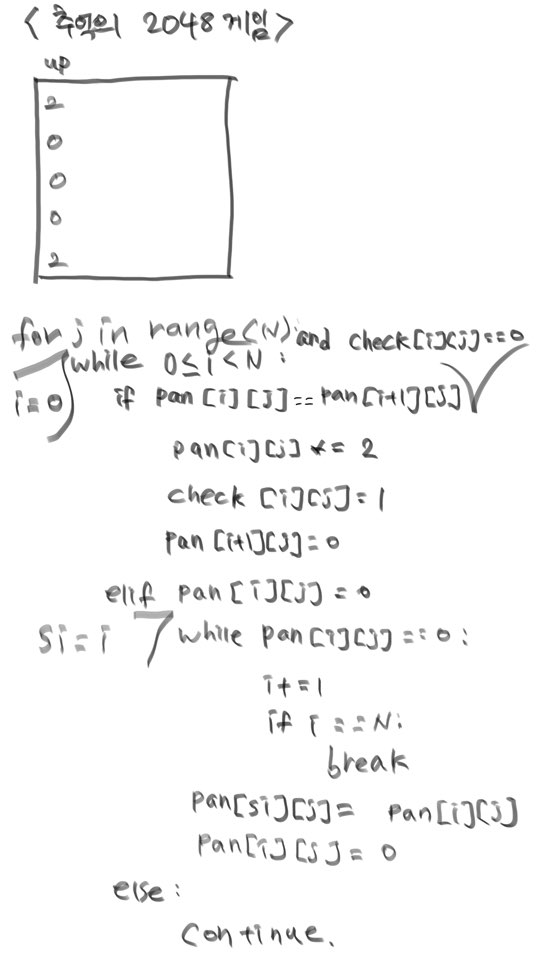 < 추억의 2048 게임 >
up
2
0
0
0
2
for j in range(N): and check[i][j]==0
while 0≤i<N:
i=0 if pan[i][j]==pan[i+1][j]
pan[i][j] *= 2
check [i][j]=1
pan [i+1][j]=0
elif pan[i][j]=0
si=i while pan[i][j]==0:
i+=1
if i==N:
break
pan[si][j]= pan[i][j]
pan[i][j]=0
else:
continue.